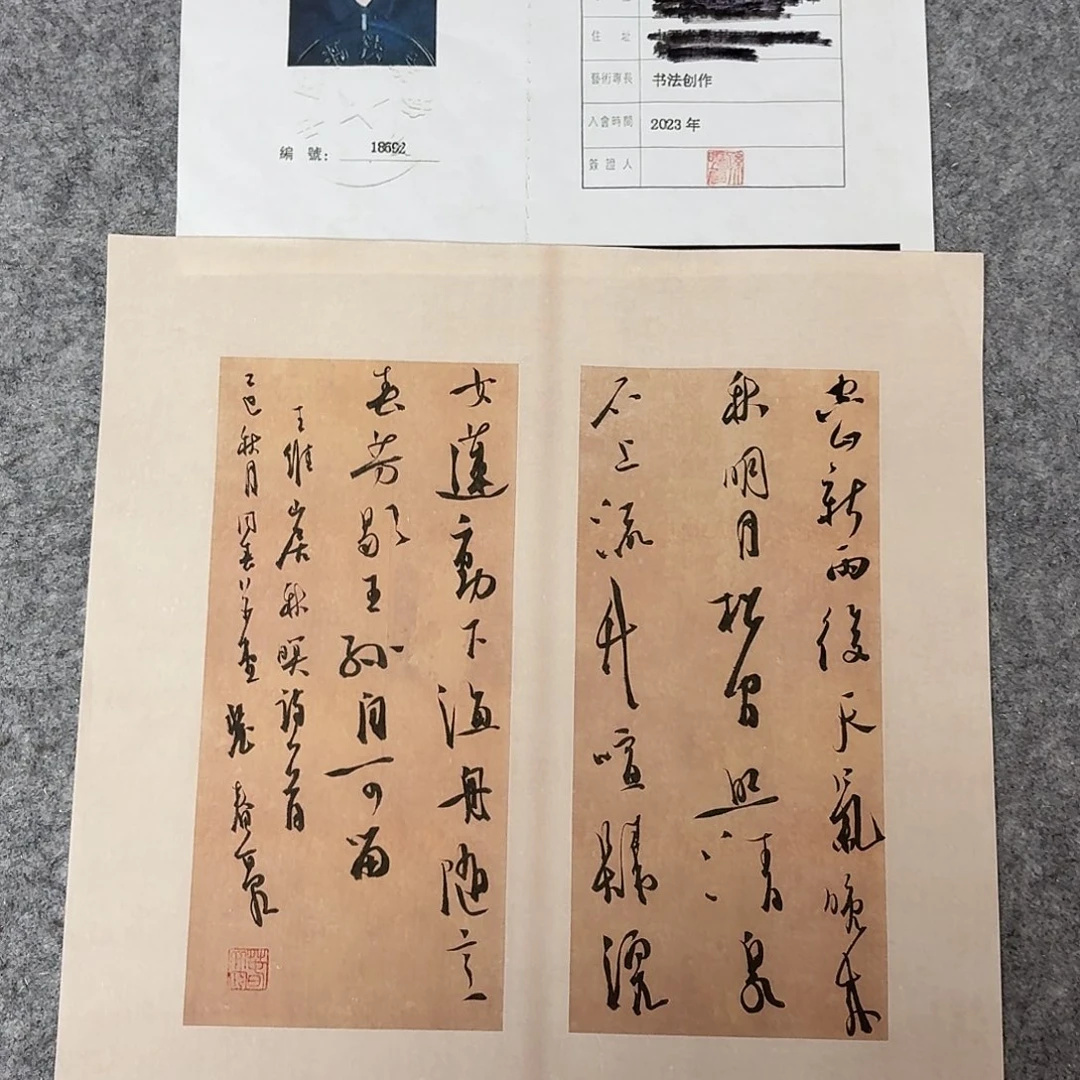 編 號: 18692
住 址
藝術專長 书法创作
入會時間 2023 年
簽證人
空山新雨後天氣晚來
秋明月松間照清泉
石上流竹喧歸浣
女蓮動下漁舟隨意
春芳歇王孫自可留
王維山居秋暝詩一首
乙巳秋月